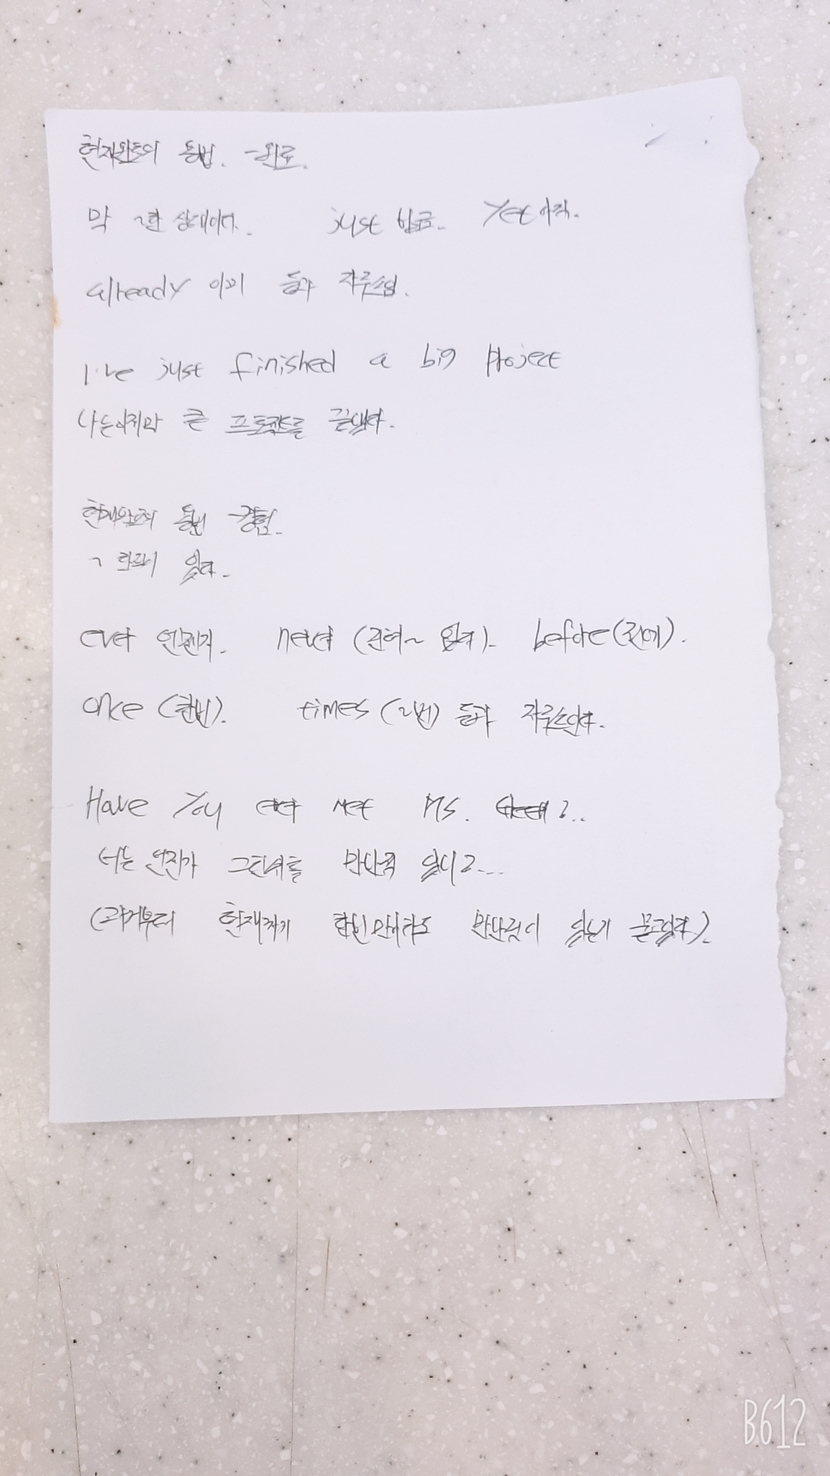 현재완료의 용법. -완료.
막 ~한 상태이다. just 방금. Yet 아직.
already 이미 등과 자주쓰임.
I've just finished a big project
나는이제막 큰 프로젝트를 끝냈다.
현재완료의 용법 -경험.
~ 한적이 있다.
ever 언젠가. never (전혀~ 없다). before(전에).
once (한번). times (~번) 등과 자주쓰인다.
Have You ever met Ms. Green?..
너는 언젠가 그린씨를 만난적 있니?...
(과거부터 현재까지 한번만이라도 만난적이 있는지 묻고있다).
B612